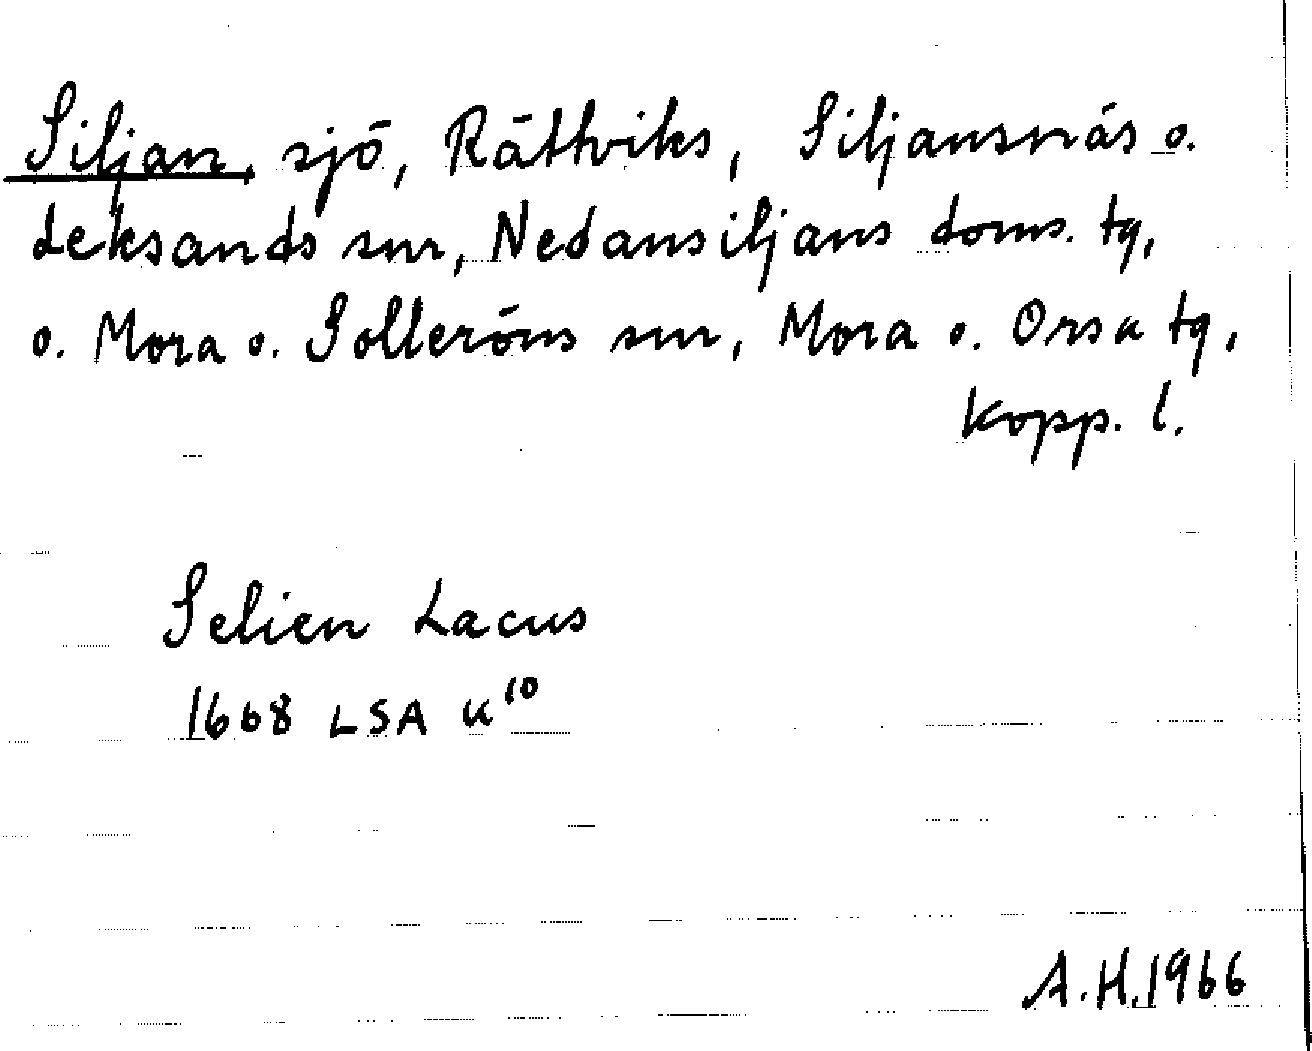 Siljan, sjö, Rättviks, Siljansnäs o.
Leksands snr, Nedansiljans doms. tg,
o. Mora o. Solleröns snr, Mora o. Orsa tg,
Kopp. l.
Selien Lacus
1668 LSA K¹⁰
A.H.1966